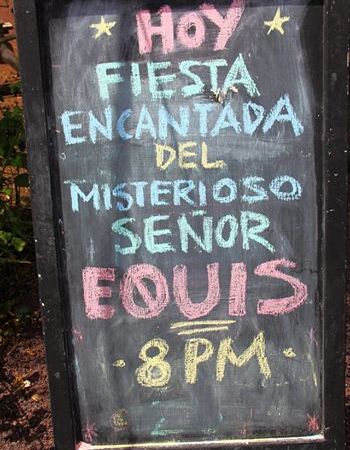 HOY
FIESTA
ENCANTADA
DEL
MISTERIOSO
SEÑOR
EQUIS
8 PM